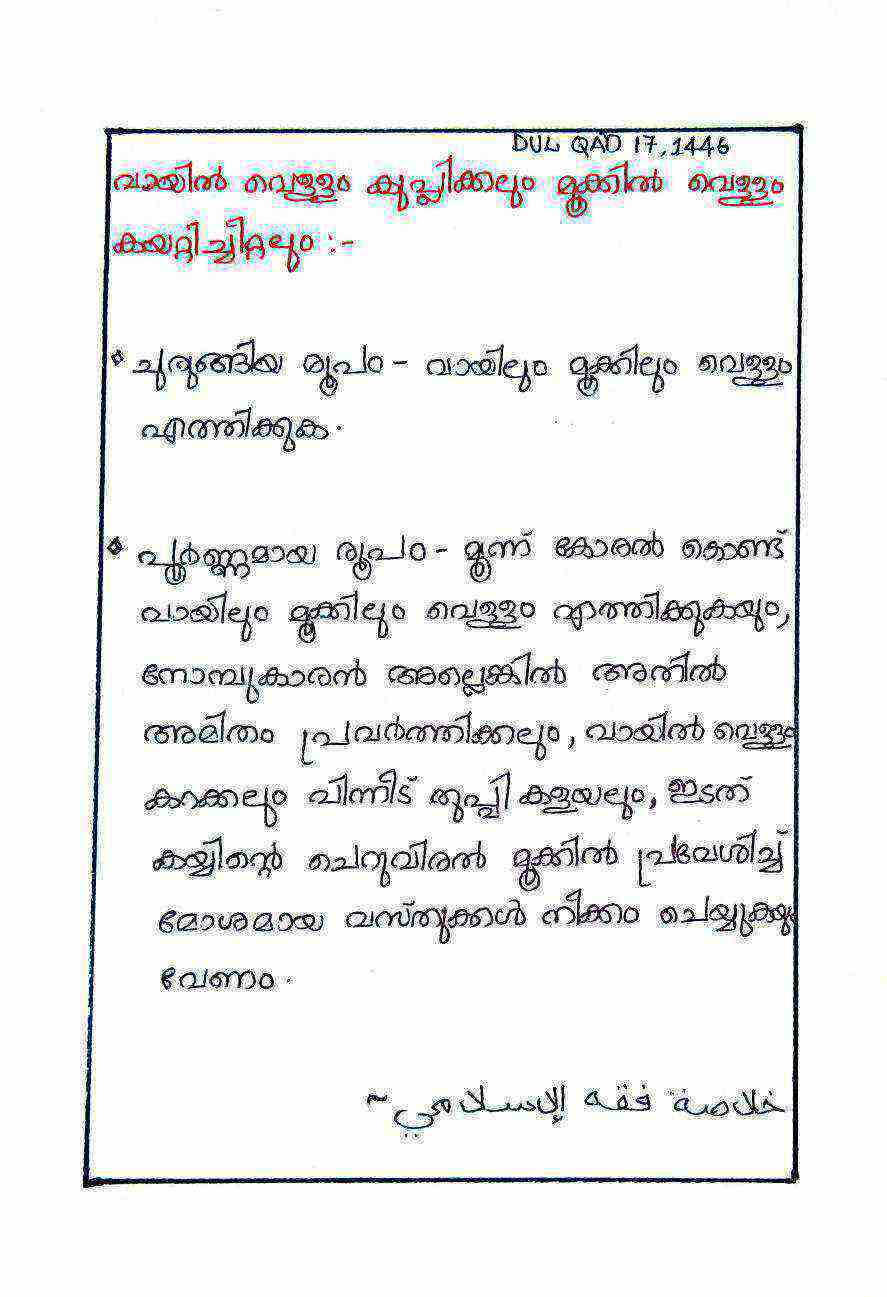 DUL QAD 17, 1446
വായിൽ വെള്ളം കുപ്ലിക്കലും മൂക്കിൽ വെള്ളം
കയറ്റിച്ചീറ്റലും :-
ചുരുങ്ങിയ രൂപം - വായിലും മൂക്കിലും വെള്ളം
എത്തിക്കുക.
പൂർണ്ണമായ രൂപം - മൂന്ന് കോരൽ കൊണ്ട്
വായിലും മൂക്കിലും വെള്ളം എത്തിക്കുകയും,
നോമ്പുകാരൻ അല്ലെങ്കിൽ അതിൽ
അമിതം പ്രവർത്തിക്കലും, വായിൽ വെള്ളം
കറക്കലും പിന്നീട് തുപ്പി കളയലും, ഇടത്
കയ്യിന്റെ ചെറുവിരൽ മൂക്കിൽ പ്രവേശിച്ച്
മോശമായ വസ്തുക്കൾ നീക്കം ചെയ്യുകയും
വേണം.
خلاصة فقه الإسلامي ~